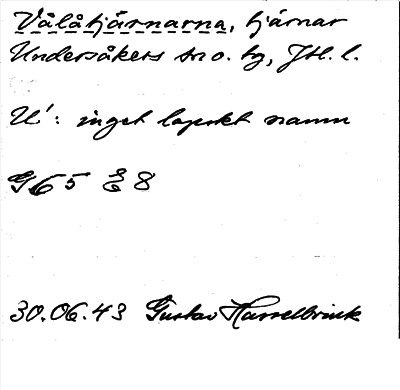 Vålåtjärnarna, tjärnar
Undersåkers sn o. tg, Jtl. l.
U!: inget lapskt namn
G65 E 8
30.06.43 Gustav Hasselbrink